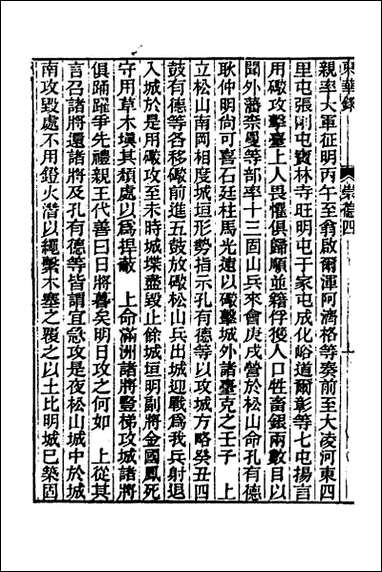 東華錄　崇德四
親率大軍征明丙午至翁啟爾渾阿濟格等奏前至大凌河東四
里屯張剛屯寶林寺旺明屯于家屯成化峪道爾彰等七屯揚言
用礮攻擊臺上人畏懼俱歸順並籍俘獲人口牲畜銀兩數目以
聞外藩柰曼等部率十三固山兵來會庚戌營於松山命孔有德
耿仲明尚可喜石廷柱馬光遠以礮擊城外諸臺克之壬子　上
立松山南岡相度城垣形勢指示孔有德等以攻城方略癸丑四
鼓有德等各移礮前進五鼓放礮松山兵出城迎戰為我兵射退
入城於是用礮攻至未時城堞盡毀止餘城垣明副將金國鳳死
守用草木塡其頹處以為捍蔽　上命滿洲諸將豎梯攻城諸將
俱踊躍爭先禮親王代善曰日將暮矣明日攻之何如　上從其
言召諸將還諸將及孔有德等皆謂宜急攻是夜松山城中於城
南攻毀處不用鐙火潛以繩繫木塞之覆之以土比明城已築固